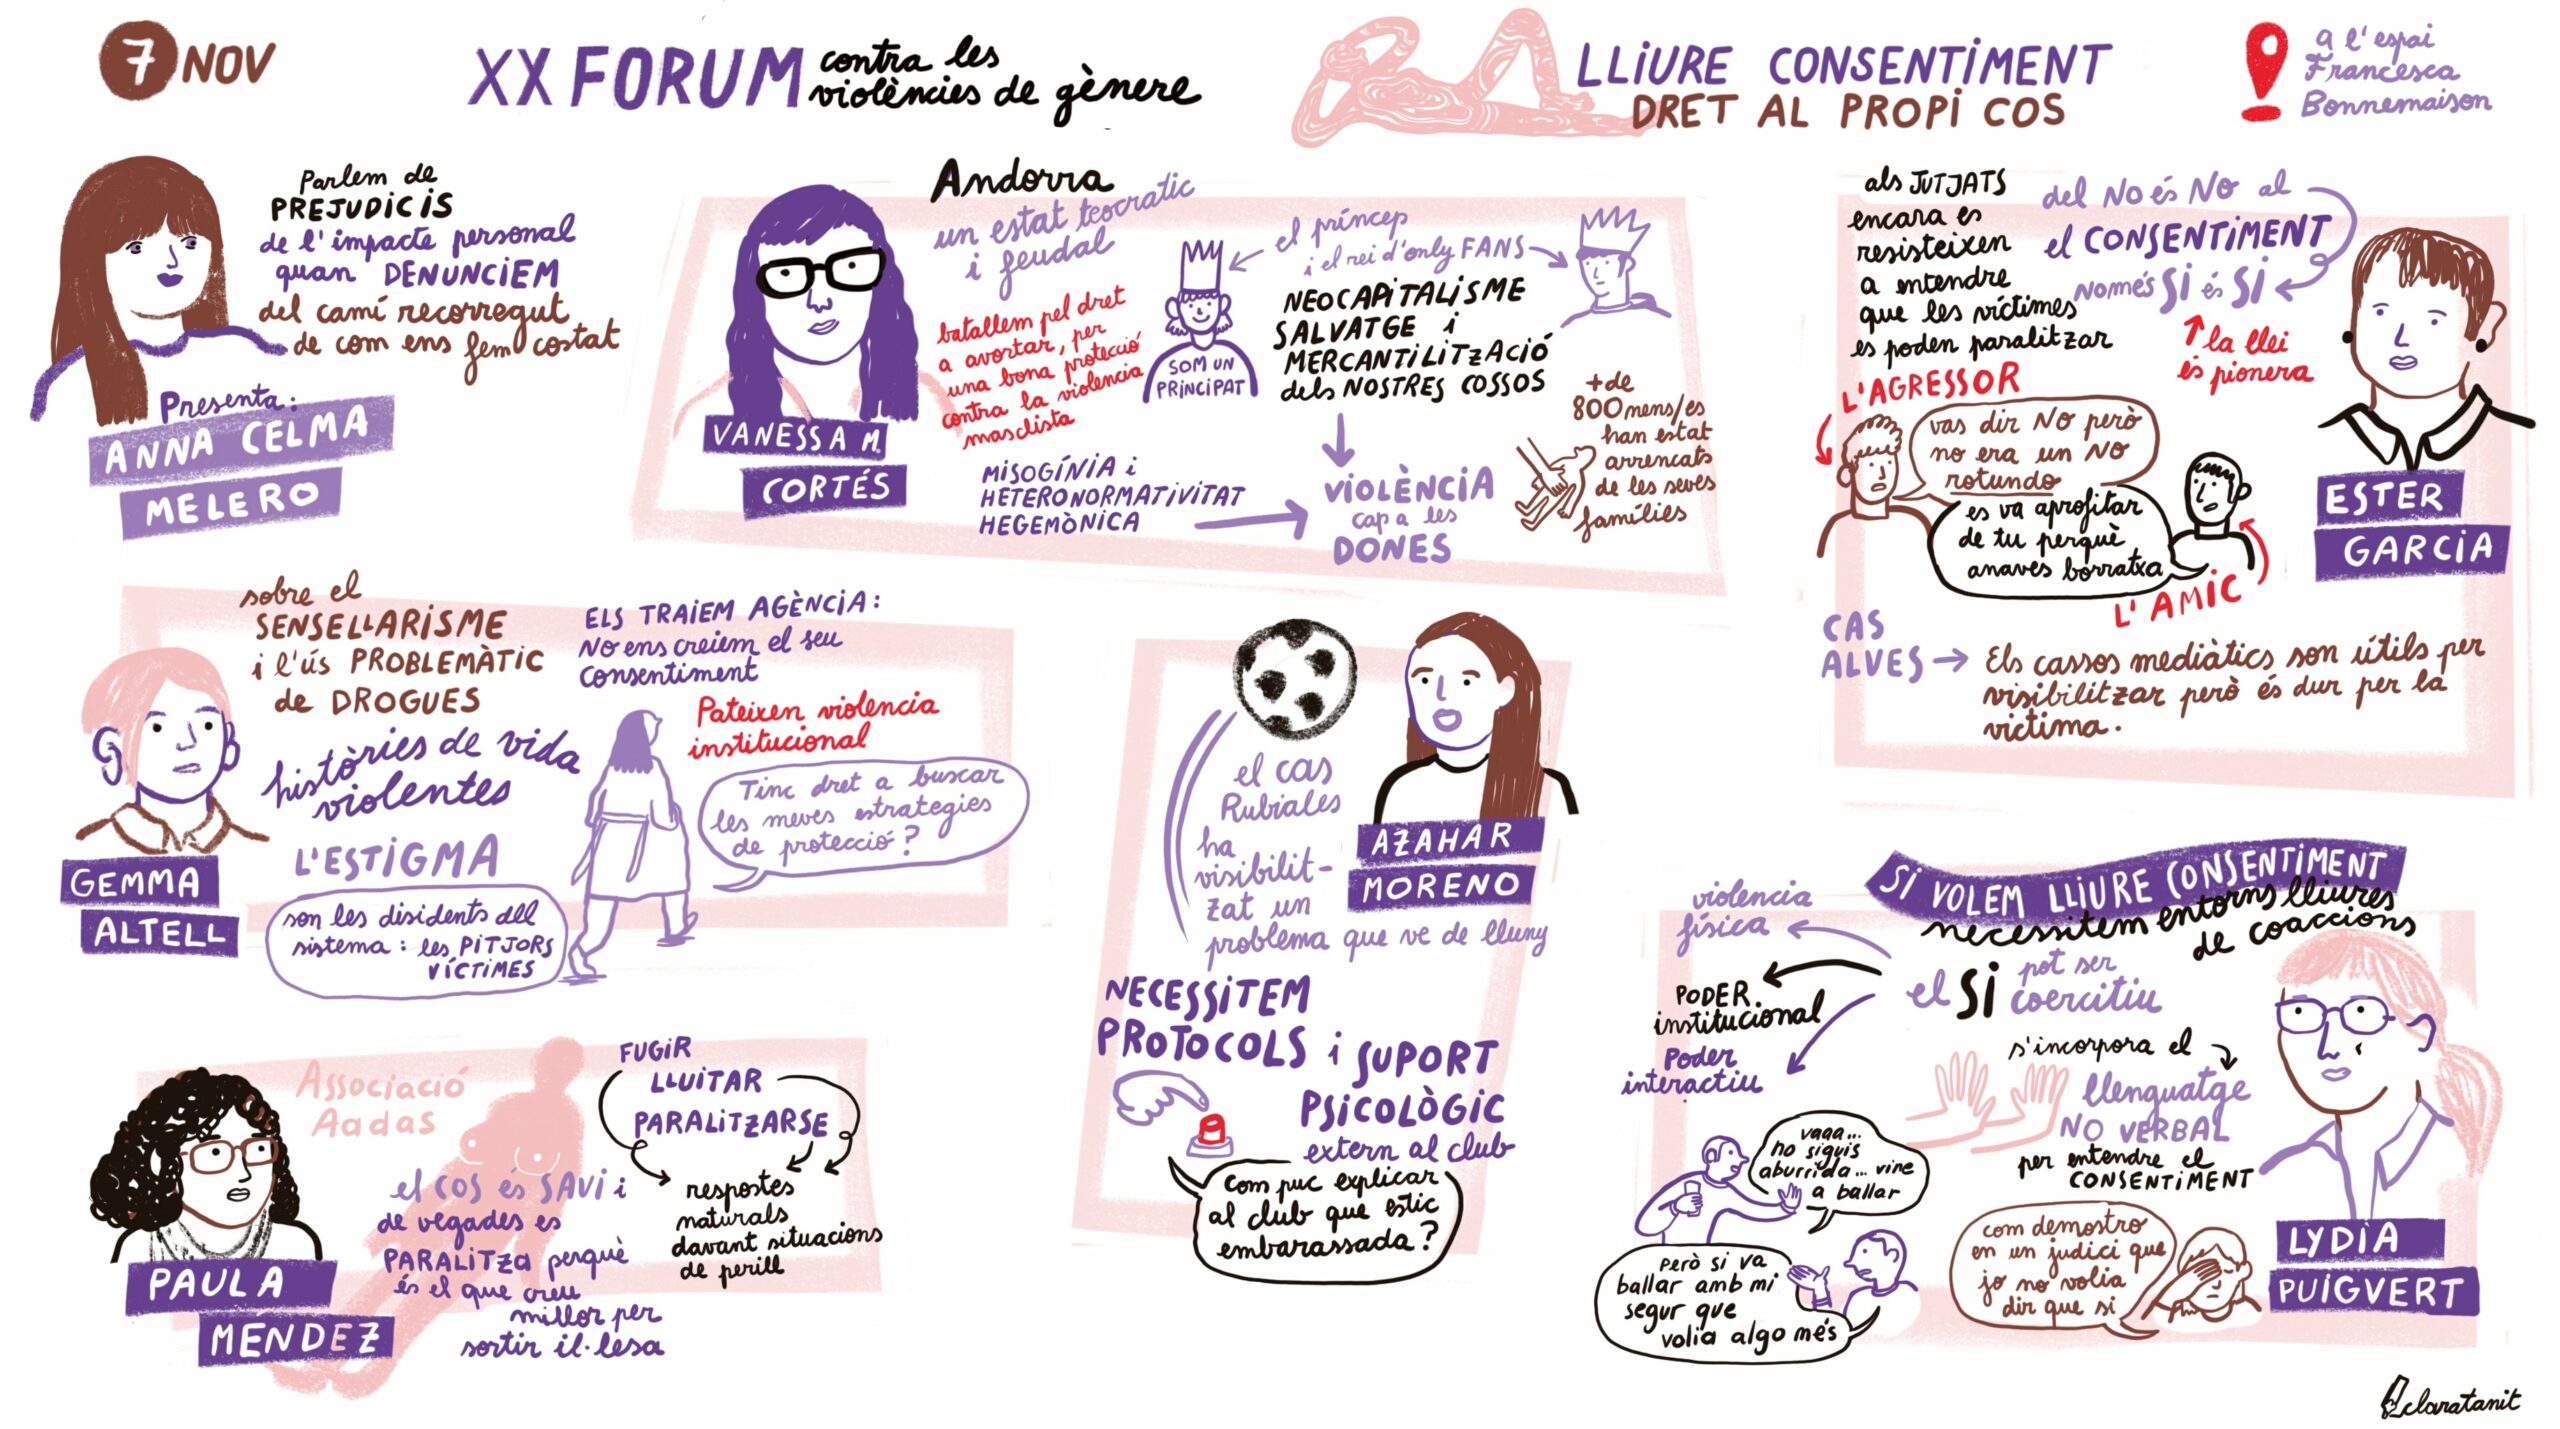 7 NOV
XX FORUM contra les
violències de gènere
LLIURE CONSENTIMENT
DRET AL PROPI COS
a l'espai
Francesca
Bonnemaison
Parlem de
PREJUDICIS
de l'impacte personal
quan DENUNCIEM
del camí recorregut
de com ens fem costat
Presenta:
ANNA CELMA
MELERO
Andorra
un estat teocratic
i feudal
batallem pel dret
a avortar, per
una bona protecció
contra la violencia
masclista
VANESSA M.
CORTÉS
el príncep
i el rei d'only FANS
SOM UN
PRINCIPAT
NEOCAPITALISME
SALVATGE i
MERCANTILITZACIÓ
dels NOSTRES COSSOS
MISOGÍNIA i
HETERONORMATIVITAT
HEGEMÒNICA
VIOLÈNCIA
cap a les
DONES
+ de
800 mens/es
han estat
arrencats
de les seves
famílies
als JUTJATS
encara es
resisteixen
a entendre
que les víctimes
es poden paralitzar
del No és No al
el CONSENTIMENT
Només Si és Si
la llei
és pionera
L'AGRESSOR
vas dir No però
no era un No
rotundo
es va aprofitar
de tu perquè
anaves borratxa
L'AMIC
ESTER
GARCIA
CAS
ALVES
Els cassos mediàtics son útils per
visibilitzar però és dur per la
victima.
sobre el
SENSELLARISME
i l'ús PROBLEMÀTIC
de DROGUES
històries de vida
violentes
L'ESTIGMA
son les disidents dll
sistema: les PITJORS
VÍCTIMES
GEMMA
ALTELL
ELS TRAIEM AGÈNCIA:
No ens creiem el seu
consentiment
Pateixen violencia
institucional
Tinc dret a buscar
les meves estrategies
de protecció?
el cas
Rubiales
ha
visibilit-
zat un
problema que ve de lluny
AZAHAR
MORENO
NECESSITEM
PROTOCOLS i SUPORT
PSICOLÒGIC
extern al club
Com puc explicar
al club que estic
embarassada?
Associació
Aadas
el COS és SAVI i
de vegades es
PARALITZA perquè
és el que creu
millor per
sortir il·lesa
FUGIR
LLUITAR
PARALITZARSE
respostes
naturals
davant situacions
de perill
PAULA
MENDEZ
SI VOLEM LLIURE CONSENTIMENT
necessitem entorns lliures
de coaccions
violencia
física
PODER
institucional
Poder
interactiu
el SI pot ser
coercitiu
s'incorpora el
llenguatge
NO VERBAL
per entendre el
CONSENTIMENT
vaga...
no siguis
aburrida... vine
a ballar
Però si va
ballar amb mi
segur que
volia algo més
com demostro
en un judici que
jo no volia
dir que si
LYDIA
PUIGVERT
claratanit